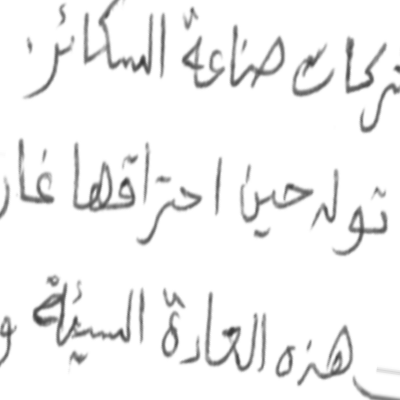 شركات صناعة السكائر.
تولد حين احتراقها غاز
هذه العادة السيئة و